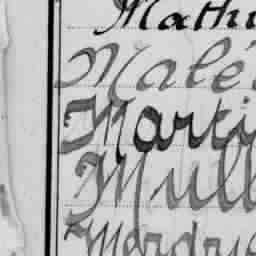 Mathi
Malé
Marti
Mull
Mardru